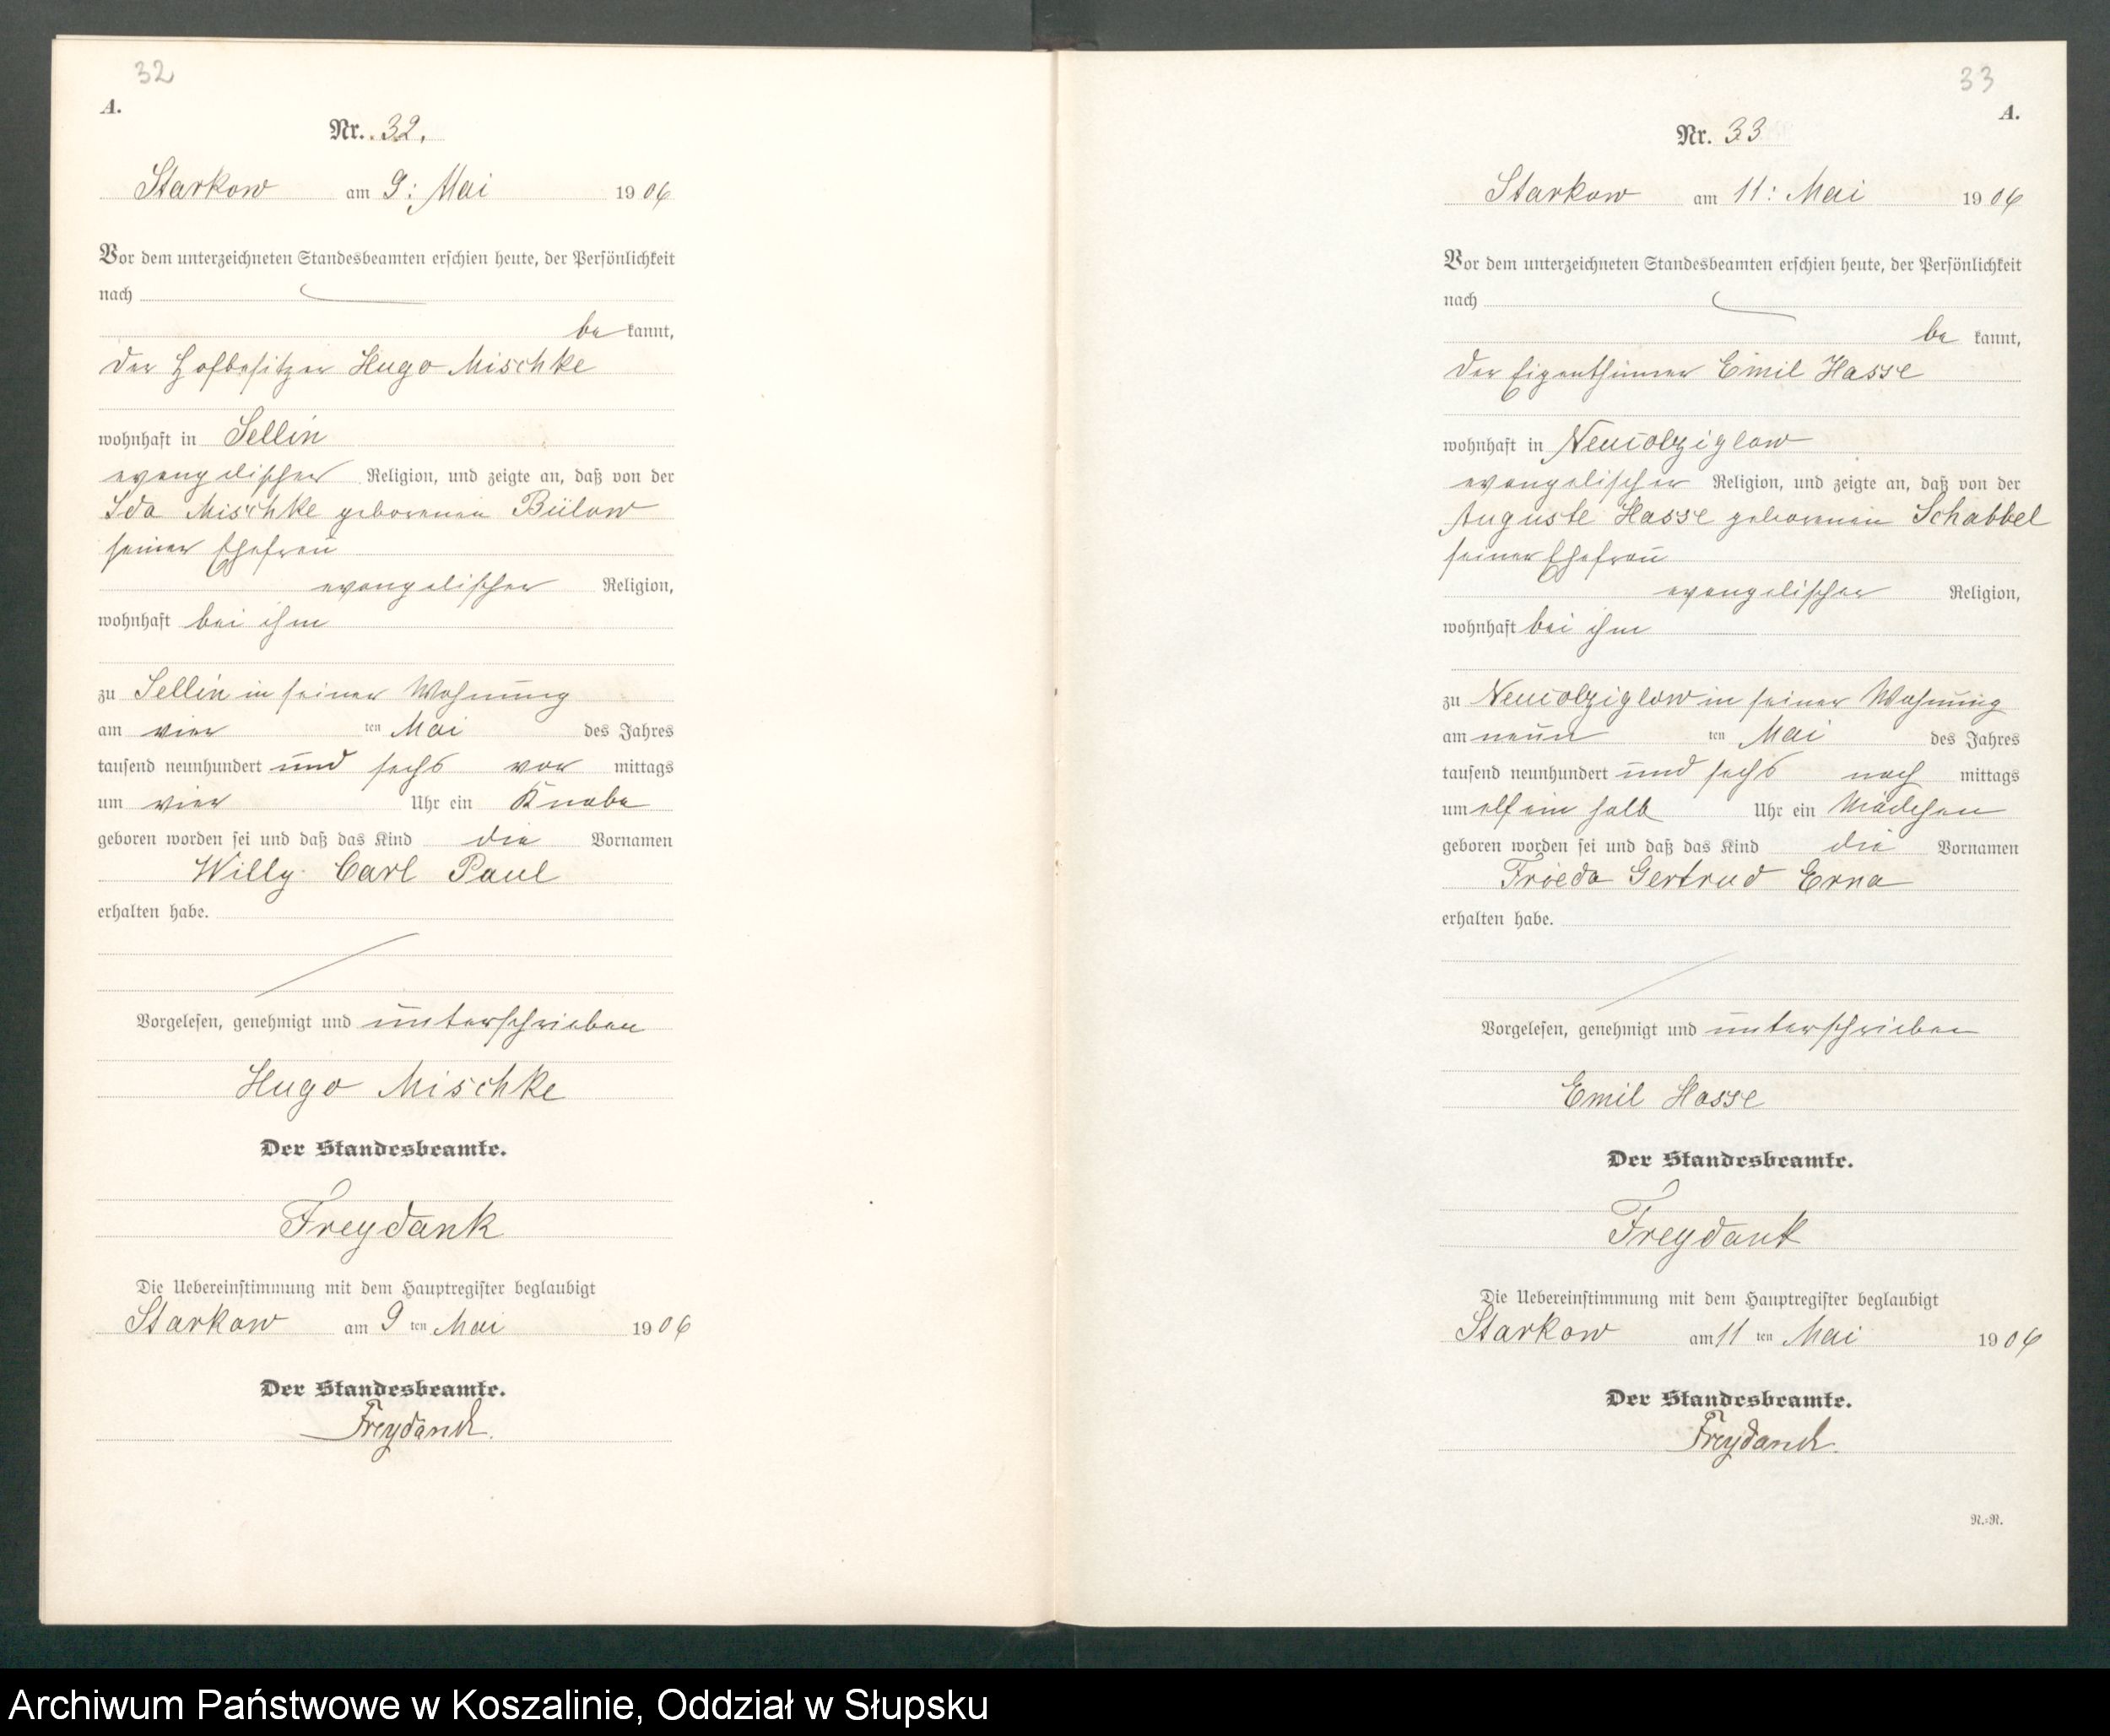 32
A.
Nr. 32.
Starkow am 9: Mai 1906
Vor dem unterzeichneten Standesbeamten erschien heute, der Persönlichkeit
nach
be kannt,
der Hofbesitzer Hugo Mischke
wohnhaft in Sellin
evangelischer Religion, und zeigte an, daß von der
Ida Mischke geborenen Bülow
seiner Ehefrau
evangelischer Religion,
wohnhaft bei ihm
zu Sellin in seiner Wohnung
am vier ten Mai des Jahres
tausend neunhundert und sechs vor mittags
um vier Uhr ein Knabe
geboren worden sei und daß das Kind die Vornamen
Willy Carl Paul
erhalten habe.
Vorgelesen, genehmigt und unterschrieben
Hugo Mischke
Der Standesbeamte.
Freydank
Die Uebereinstimmung mit dem Hauptregister beglaubigt
Starkow am 9 ten Mai 1906
Der Standesbeamte.
Freydank.
33
A.
Nr. 33
Starkow am 11: Mai 1906
Vor dem unterzeichneten Standesbeamten erschien heute, der Persönlichkeit
nach
be kannt,
der Eigenthümer Emil Hasse
wohnhaft in Neucolziglow
evangelischer Religion, und zeigte an, daß von der
Auguste Hasse geborenen Schabbel
seiner Ehefrau
evangelischer Religion,
wohnhaft bei ihm
zu Neucolziglow in seiner Wohnung
am neun ten Mai des Jahres
tausend neunhundert und sechs nach mittags
um elf ein halb Uhr ein Mädchen
geboren worden sei und daß das Kind die Vornamen
Frieda Gertrud Erna
erhalten habe.
Vorgelesen, genehmigt und unterschrieben
Emil Hasse
Der Standesbeamte.
Freydank
Die Uebereinstimmung mit dem Hauptregister beglaubigt
Starkow am 11 ten Mai 1906
Der Standesbeamte.
Freydank.
R.-R.
Archiwum Państwowe w Koszalinie, Oddział w Słupsku